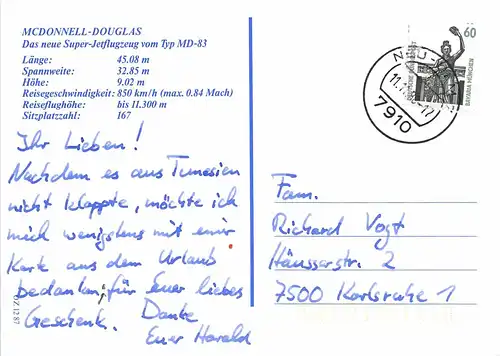 MCDONNELL-DOUGLAS
Das neue Super-Jetflugzeug vom Typ MD-83
Länge: 45.08 m
Spannweite: 32.85 m
Höhe: 9.02 m
Reisegeschwindigkeit: 850 km/h (max. 0.84 Mach)
Reiseflughöhe: bis 11.300 m
Sitzplatzzahl: 167
Ihr Lieben!
Nachdem es aus Tunesien
nicht klappte, möchte ich
mich wenigstens mit einer
Karte aus dem Urlaub
bedanken, für Euer liebes
Geschenk. Danke
Euer Harald
02.12.87
60
DEUTSCHE BUNDESPOST
BAVARIA MÜNCHEN
NEU-
7910
Fam.
Richard Vogt
Häusserstr. 2
7500 Karlsruhe 1